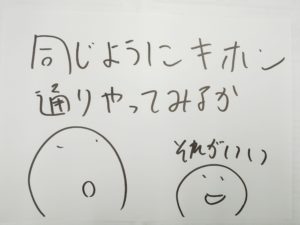 同じようにキホン
通りやってみるか
それがいい